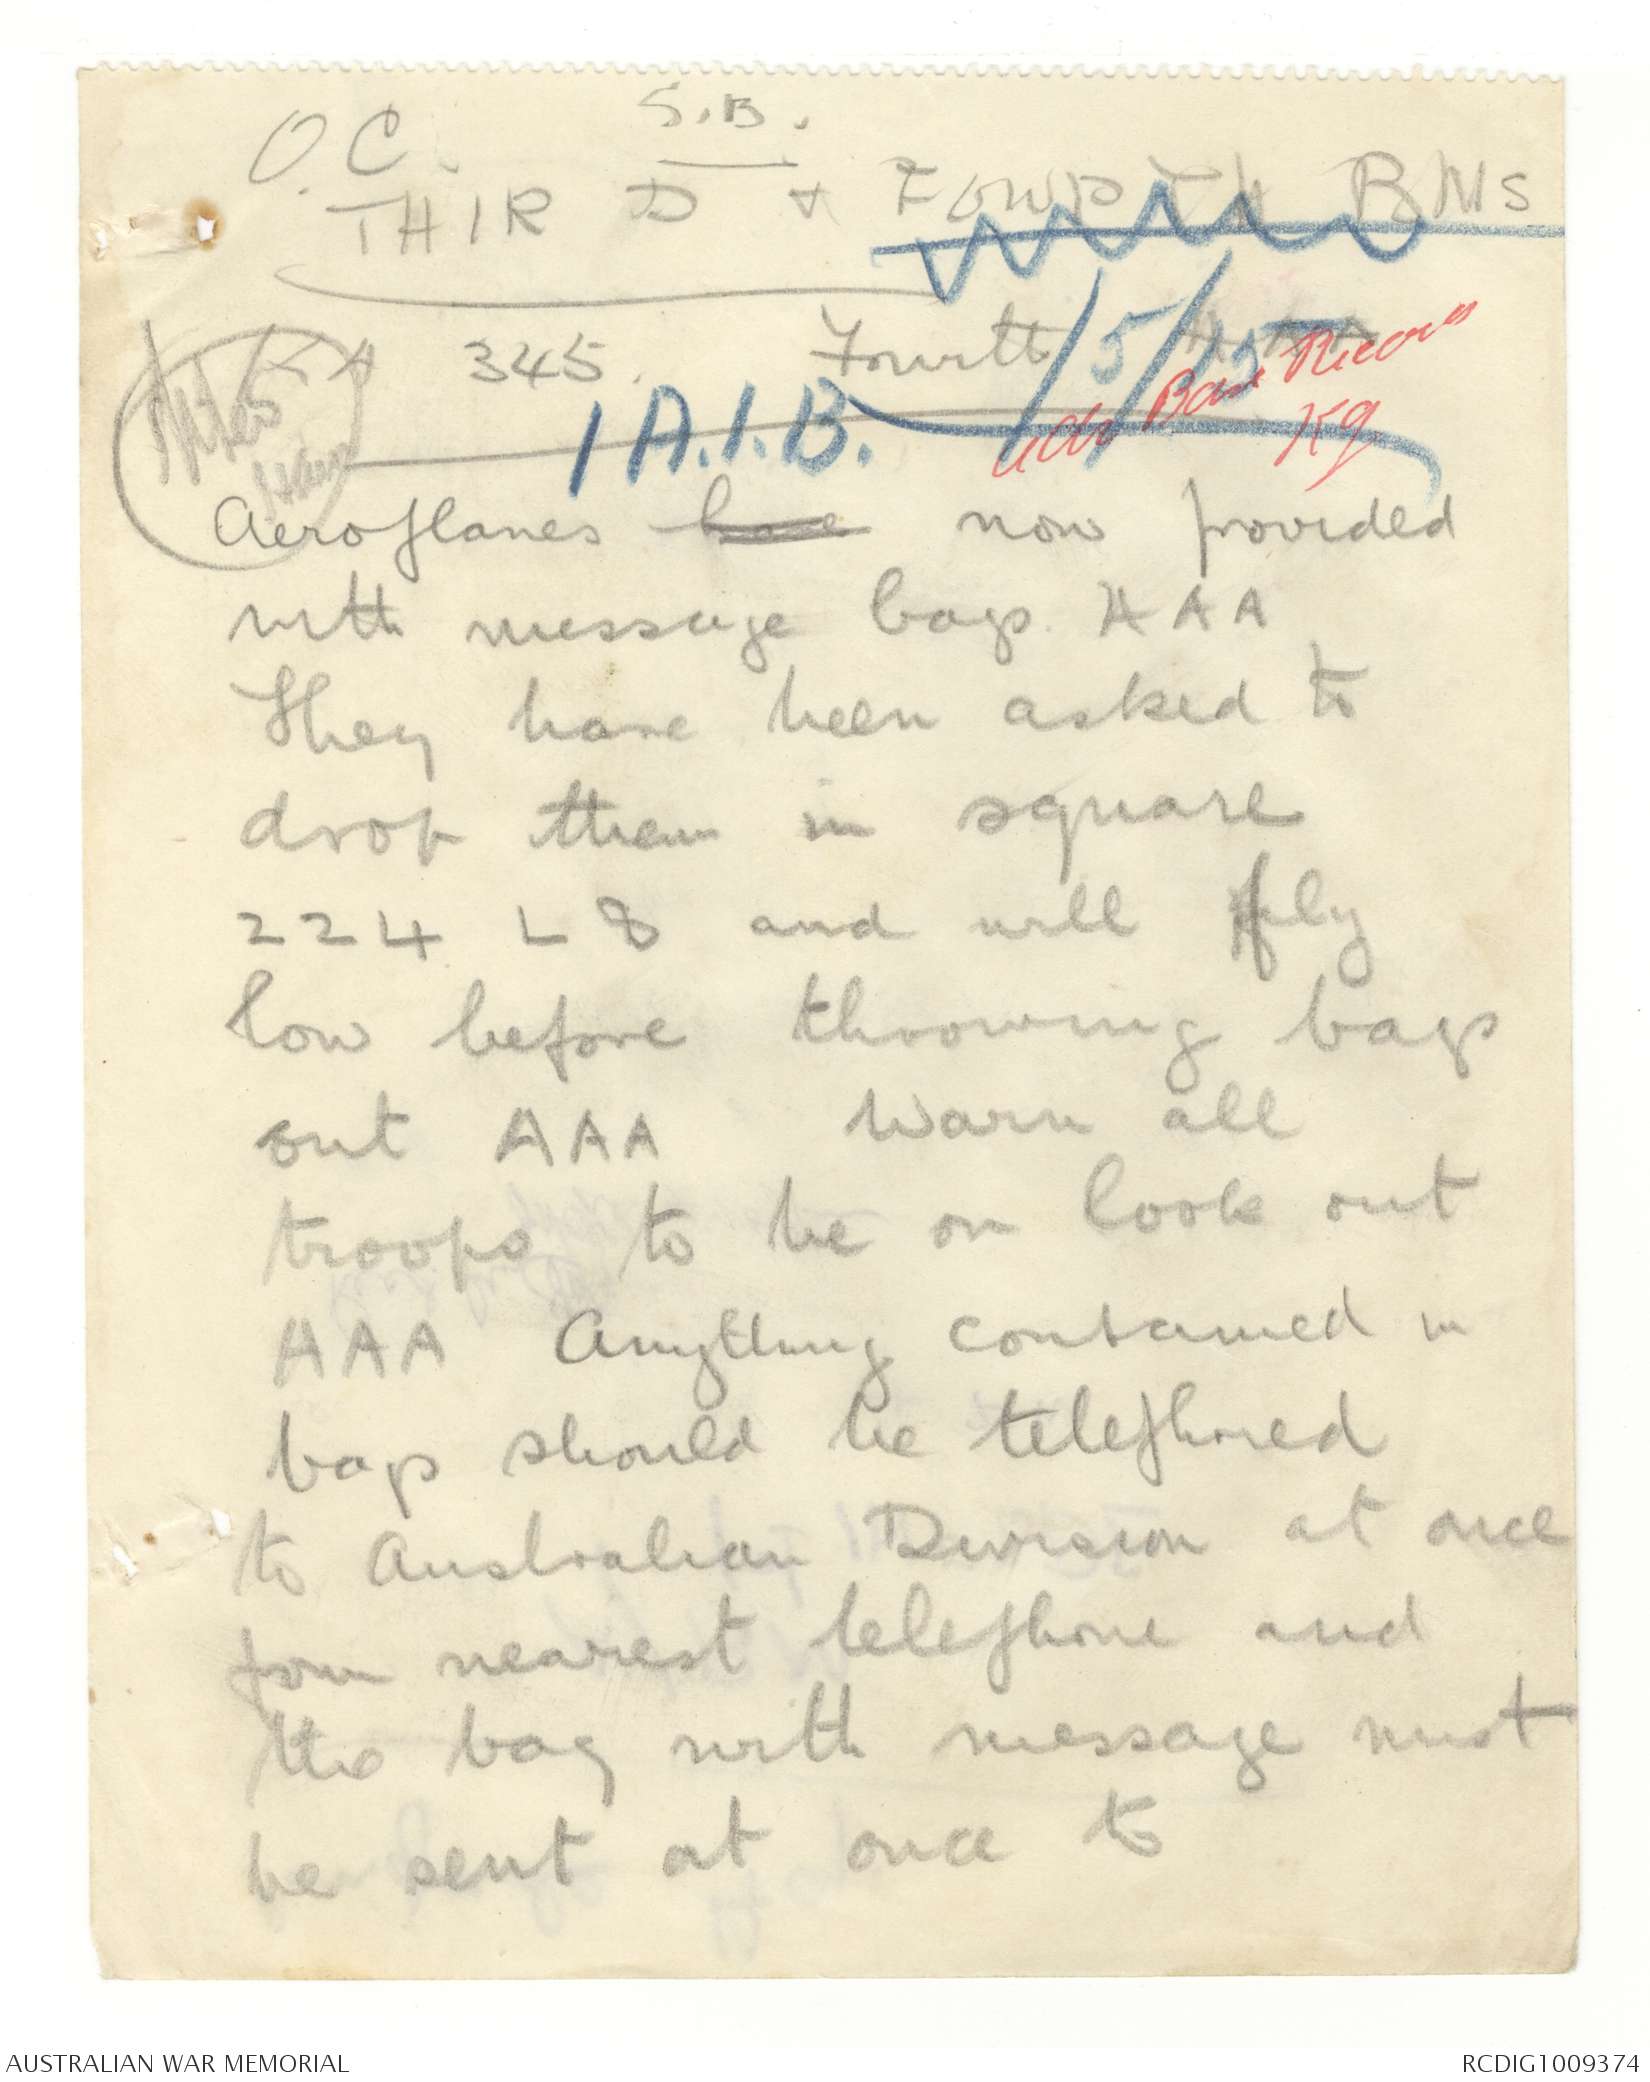 S.B.
O.C.
THIRD & FOURTH BNS
KA 345. Fourth AAA
/5/15
1 A.I.B.
Base Records
Aeroplanes have now provided
with message bags. AAA
They have been asked to
drop them in square
224 L 8 and will fly
low before throwing bags
out AAA Warn all
troops to be on look out
AAA Anything contained in
bags should be telephoned
to Australian Division at once
from nearest telephone and
the bag with message must
be sent at once to
AUSTRALIAN WAR MEMORIAL
RCDIG1009374